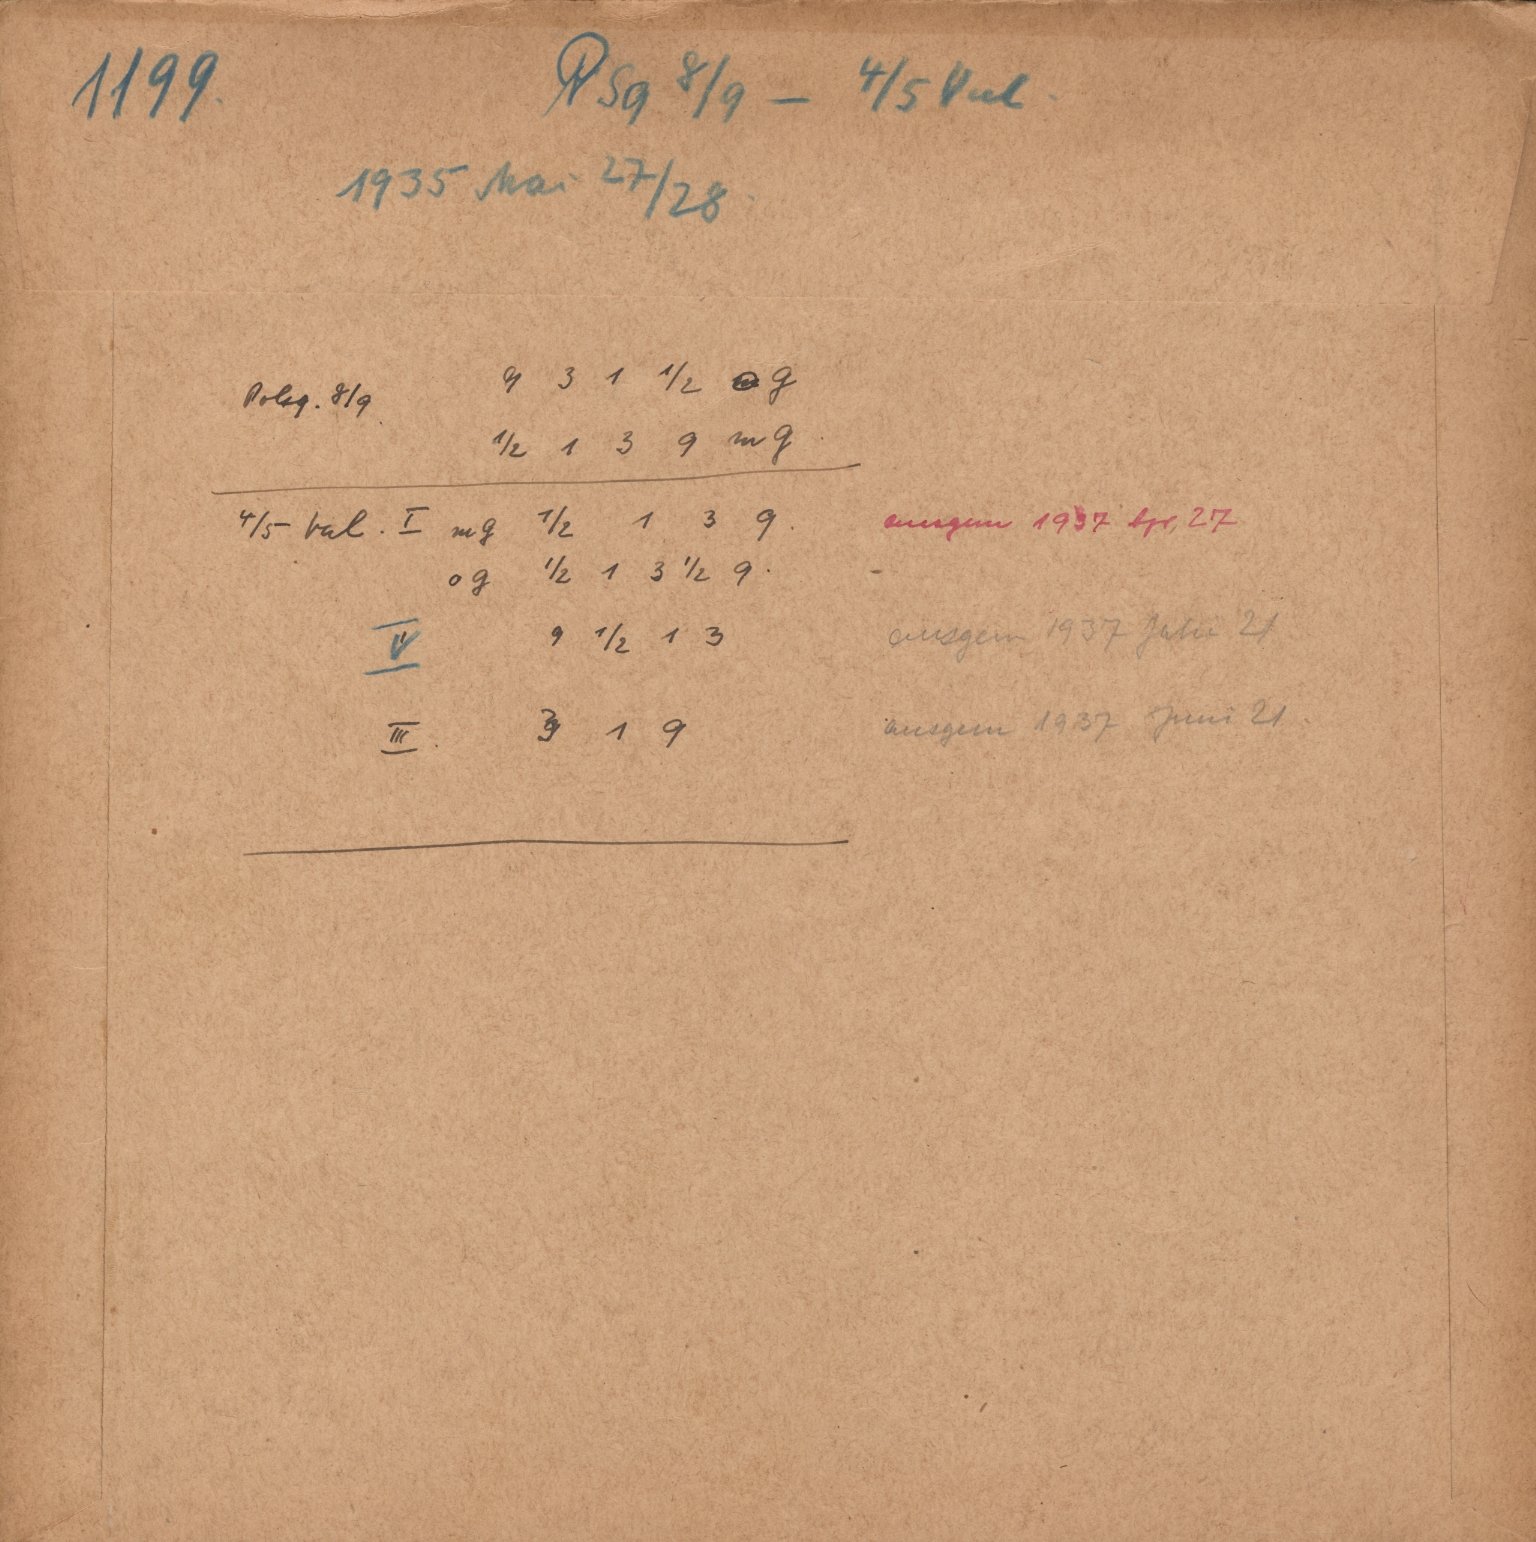 1199. PSq 8/9 – 4/5 Vul.
1935 Mai 27/28.
Polsq. 8/9 9 3 1 1/2 og
1/2 1 3 9 mg.
4/5 Vul. I mg 1/2 1 3 9. ausgem 1937 Apr. 27
og 1/2 1 3 1/2 9. –
9 1/2 1 3 ausgem 1937 21
III. 1 9 ausgem 1937 Juni 21.